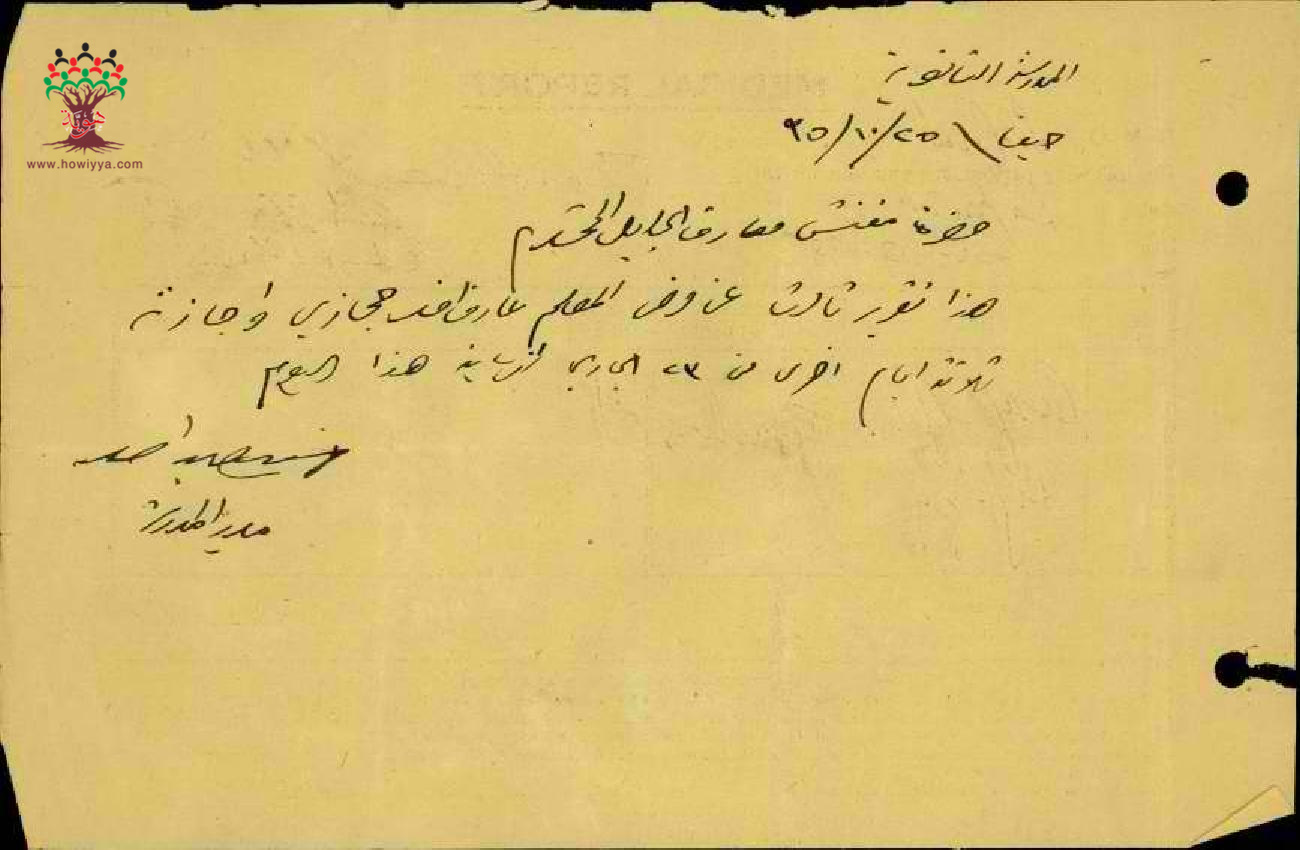 هوية
www.howiyya.com
MEDICAL REPORT
المدرسة الثانوية
حيفا \ ٢٥/١٠/٣٥
حضرة مفتش معارف الجليل المحترم
هذا تقرير ثالث عن مرض المعلم عارف افندي حجازي واجازته
ثلاثة ايام اخرى من ٢٣ الجاري لنهاية هذا اليوم
مدير المدرسة